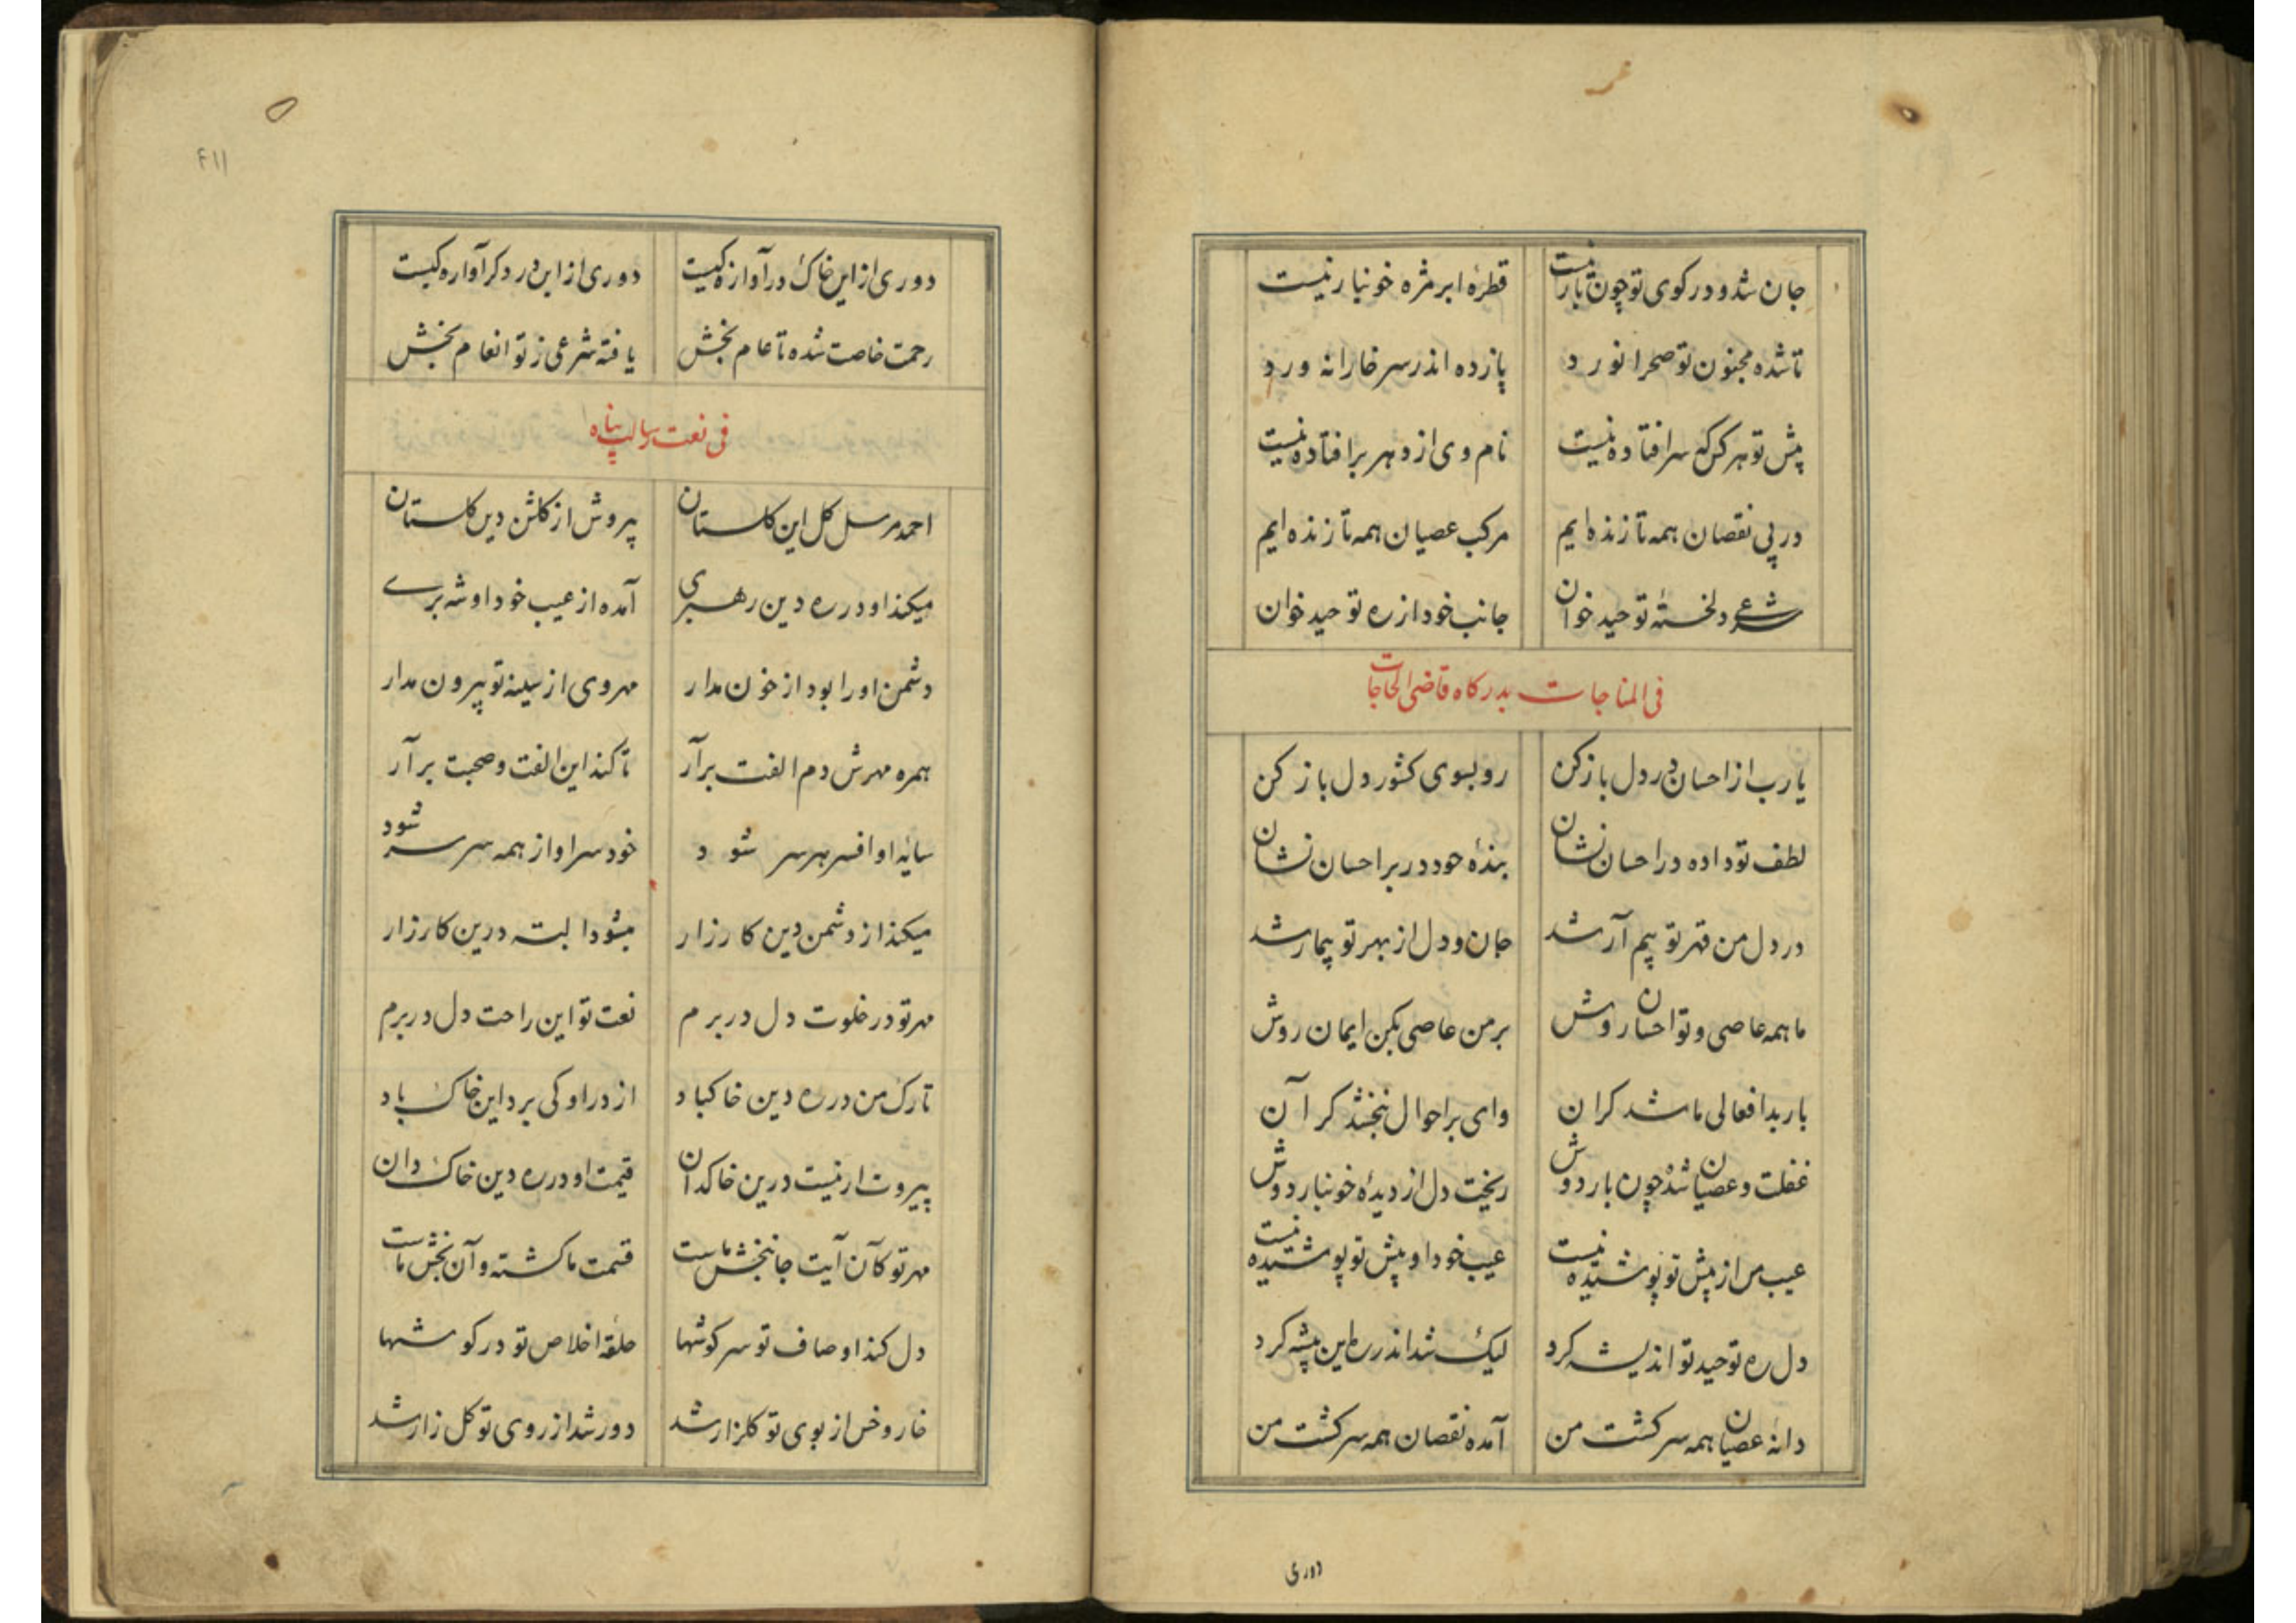 جان شد و در کوی تو چون بار نیست قطرهٔ ابر مژه خونبار نیست
تا شده مجنون تو صحرا نورد پا زده اندر سر خارا نه ورد
پیش تو هر کس که سر افتاده نیست نام وی از دهر بر افتاده نیست
در پی نقصان همه تا زنده‌ایم مرکب عصیان همه تا زنده‌ایم
شرعی دلخستهٔ توحید خوان جانب خود از ره توحید خوان
فی المناجات بدرکاه قاضی الحاجات
یا رب از احسان در دل باز کن رو بسوی کشور دل باز کن
لطف تو داده در احسان نشان بندهٔ خود در بر احسان نشان
در دل من قهر تو بیم آر شد جان و دل از بهر تو بیمار شد
ما همه عاصی و تو احسان روش بر من عاصی بکن ایمان روش
بار بد افعالی ما شد کران وای بر احوال نبخشد کر آن
غفلت و عصیان شده چون بار دوش ریخت دل از دیدهٔ خونبار دوش
عیب من از پیش تو پوشیده نیست عیب خود او پیش تو پوشیده نیست
دل ره توحید تو اندیشه کرد لیک شد اندر ره این پیشه کرد
دانهٔ عصیان همه سر کشت من آمده نقصان همه سر کشت من
دوری
۴۱۱
دوری از این خاک در آوازه کیست دوری از این در دکر آواره کیست
رحمت خاصت شده تا عام بخش یافته شرعی ز تو انعام بخش
فی نعت رسالت پناه
احمد مرسل کل این کلستان پیروش از کلشن دین کل ستان
میکند او در ره دین رهبری آمده از عیب خود او شه بری
دشمن او را بود از خون مدار مهر وی از سینه تو بیرون مدار
همره مهرش دم الفت بر آر تا کند این الفت و صحبت بر آر
سایهٔ او افسر هر سر شود خود سر او از همه سر سر شود
میکند از دشمن دین کار زار میشود البته درین کارزار
مهر تو در خلوت دل در برم نعت تو این راحت دل در برم
تارک من در ره دین خاکباد از در او کی برد این خاک باد
پیروت ار نیست درین خاکدان قیمت او در ره دین خاک دان
مهر تو کان آیت جانبخش ماست قسمت ما کشته و آن بخش ماست
دل کند اوصاف تو سر کوشها حلقهٔ اخلاص تو در کوشها
خار و خس از بوی تو کلزار شد دور شد از روی تو کل زار شد